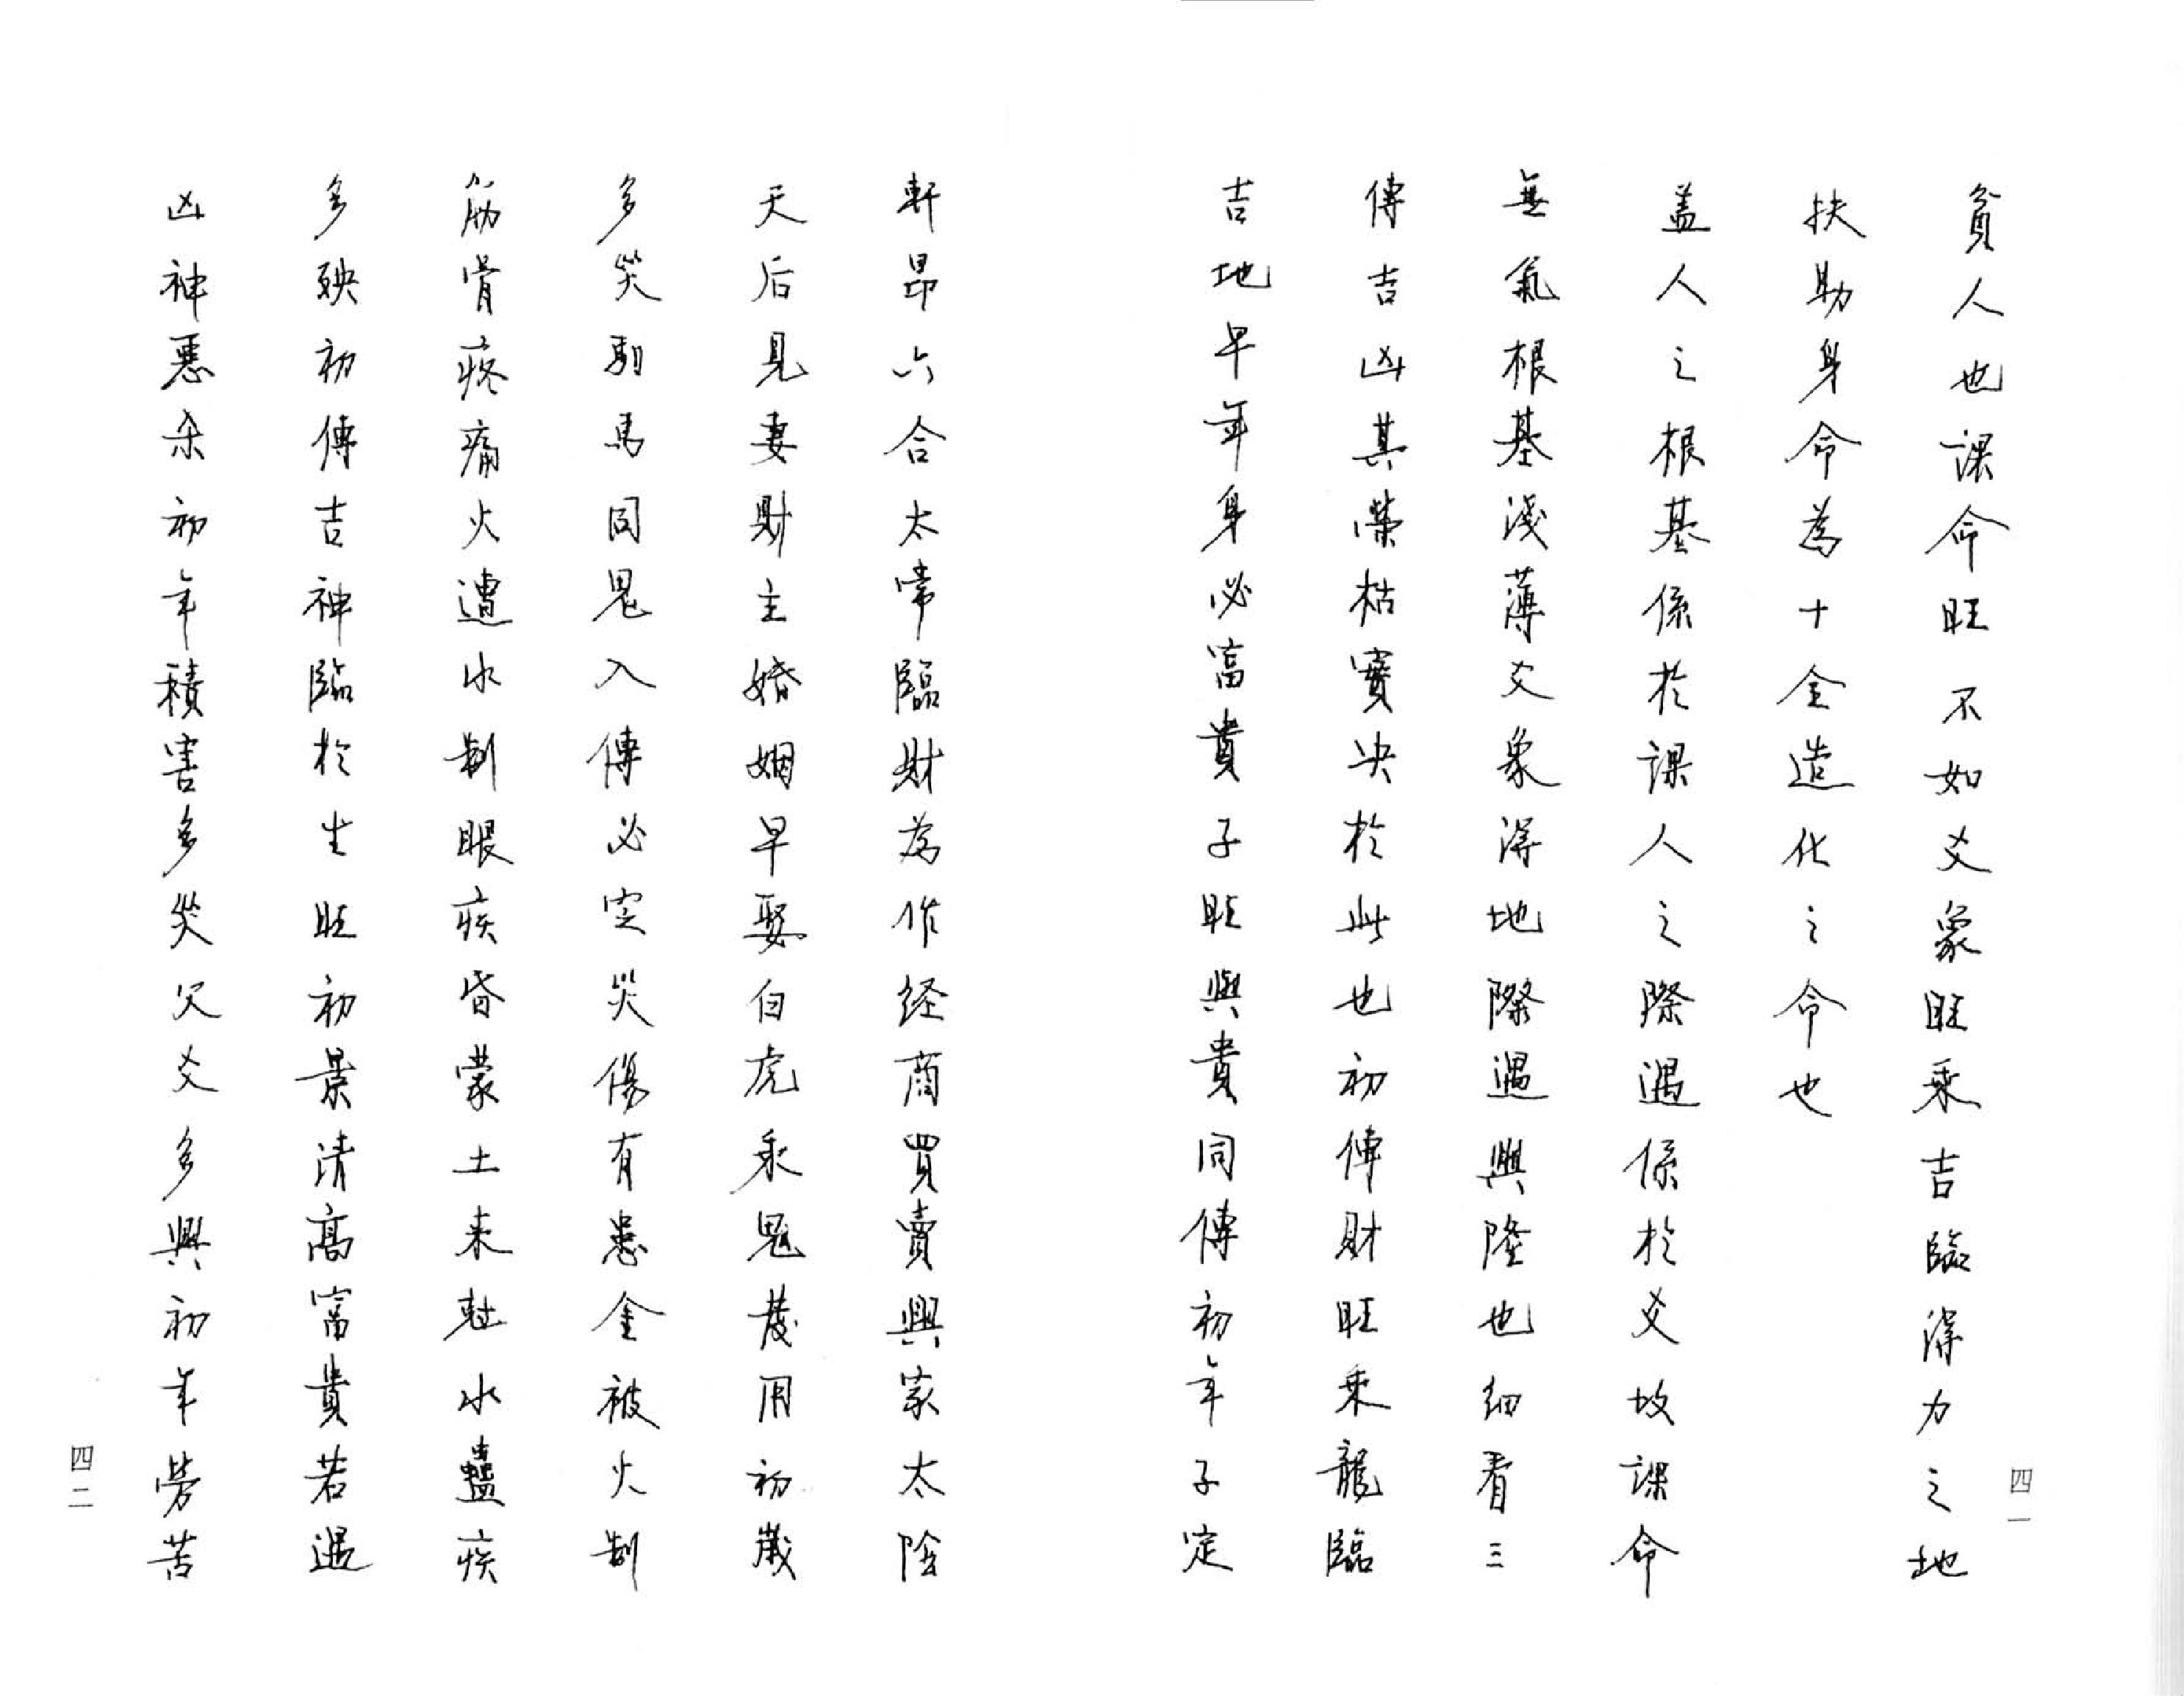 貧人也課命旺不如爻象旺乘吉臨得力之地
扶助身命為十全造化之命也
盖人之根基係於課人之際遇係於爻故課命
無氣根基淺薄爻象得地際遇興隆也細看三
傳吉凶其榮枯實决於此也初傳財旺乘龍臨
吉地早年身必富貴子旺與貴同傳初年子定
四一
軒昂六合太常臨財為作経商買賣興家太陰
天后見妻財主婚姻早娶白虎乘鬼發用初歲
多災馹馬同鬼入傳必定災傷有患金被火制
筋骨疼痛火遭水制眼疾昏蒙土来尅水蠱疾
多殃初傳吉神臨於生旺初景清高富貴若遇
凶神悪杀初年積害多災父爻多興初年労苦
四二